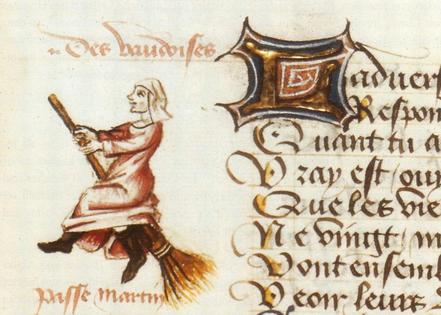 Des vaudoises
L adver
Respon
Quant tu a
Vray est / ou
Que les vie
Ne vingt / 
Vont ensem
Veoir leurs
passe martin